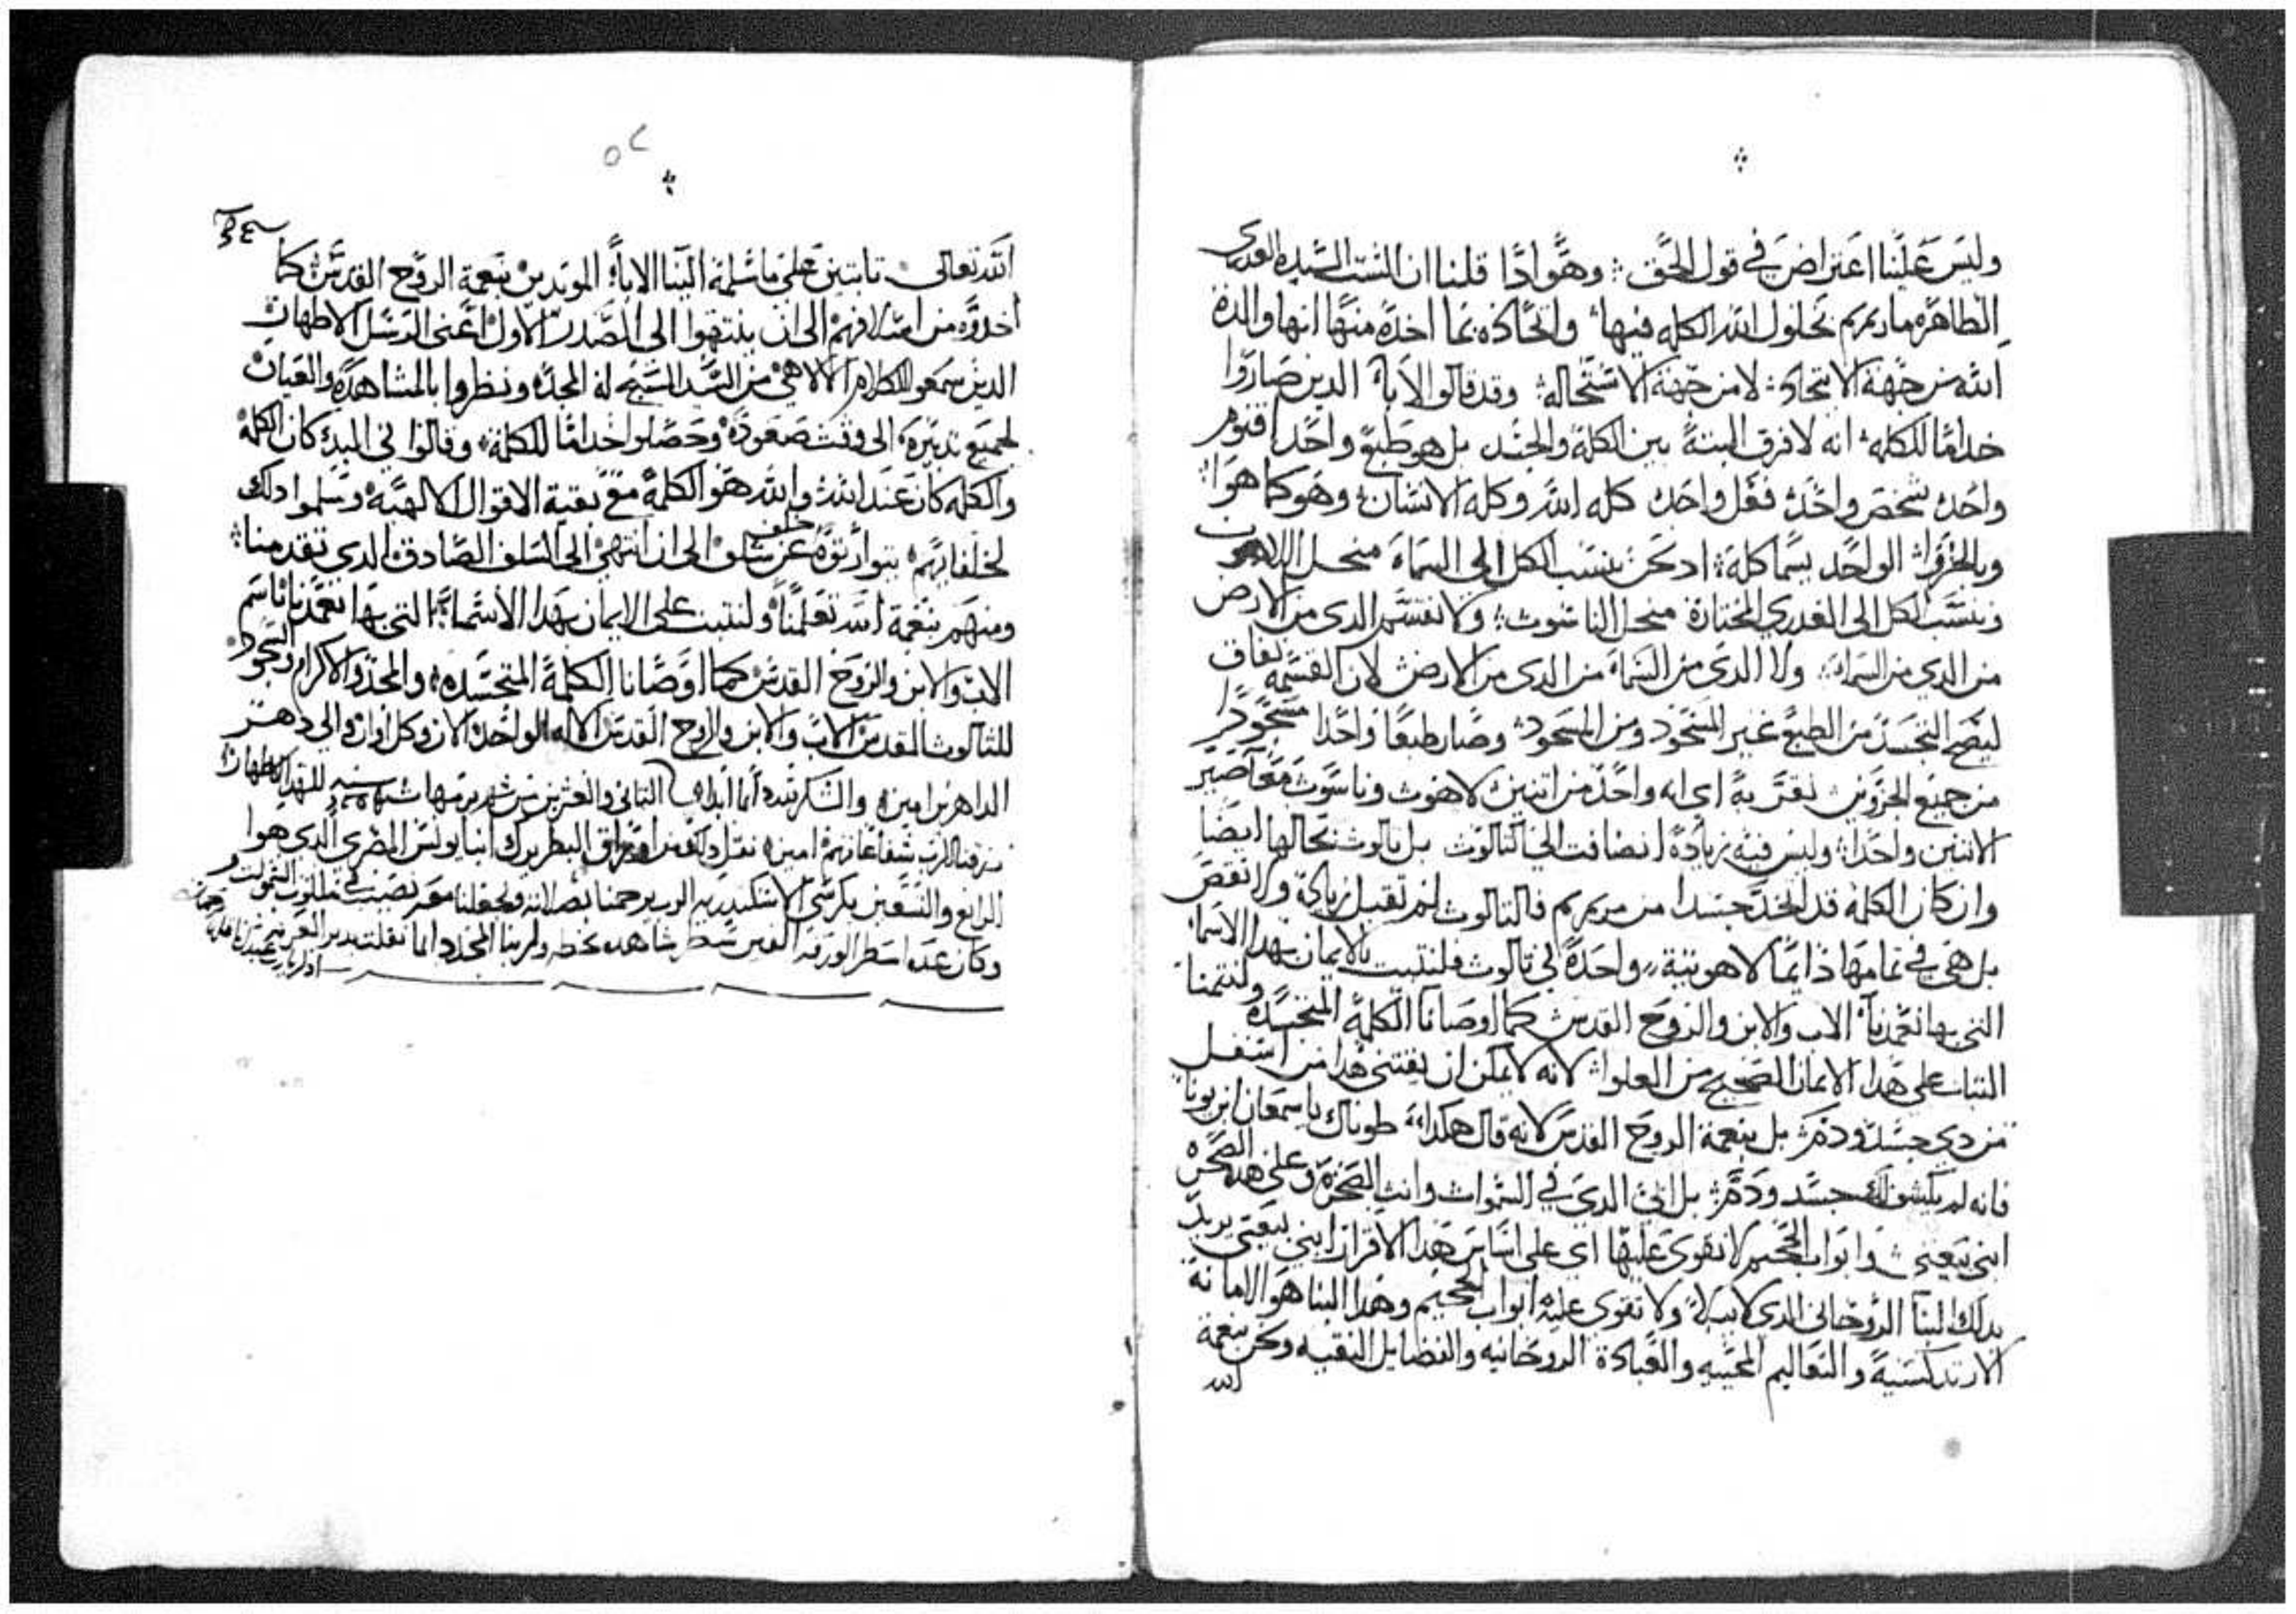 وليس علينا اعتراض في قول الحق وهوادا قلنا ان الست السيده العدرى
الطاهره ماريمريم بحلول الله الكله فيها واتحاده بما اخده منها انها والدة
الله من جهة الاتحاد لا من جهة الاستحاله وقد قالو الاباء الدين صاروا
خداما للكله انه لا فرق البتة بين الكلة والجسد بل هو طبع واحد اقنوم
واحد شخص واحد فعل واحد كله الله وكله الانسان وهو كما هوا
الواحد يسما كلة اد نحن ننسب الكل الى السماء منحل اللاهوت
وننسب الكل الى العدري المختارة منحل الناسوت ولا نقسم الدى من الارض
من الدي من السماء ولا الدى من السماء من الدى من الارض لان القسمه تعاف
ليصح التجسد من الطبع غير المسجود ومن المسجود وصار طبعا واحدا مسجودا
من جميع نقر به اى انه واحد من اتنين لاهوت وناسوت معا صير
الاتنين واحدا وليس فيه زيادة انضافت الى التالوت بل تالوت بحالها ايضا
وان كان الكلمة قد اتخد جسدا من مريم فالتالوت لم تقبل زيادة ولا نقص
بل هى في تمامها دايما لاهوتية واحدة في تالوت فلنتبت بالايمان بهدا الاسما
التى بها تعمدنا الاب والابن والروح القدس كما اوصانا الكلمة المتجسده
التبات على هدا الايمان الصحيح من العلوا لانه لا يمكن ان يقتنى هدا من اسفل
من دي جسد ودم بل بنعمة الروح القدس لانه قال هكدا طوباك ياسمعان ابن يونا
فانه لم يكشف لك جسد ودم بل ابى الدى في السموات وانت الصخرة وعلى هده الصخره
ابنى بيعتى وابواب الجحيم لا تقوى عليها اي على اساس هدا الاقرار ابنى بيعتى يريد
بدلك البنا الروحانى الدى لا يبلا ولا تقوى عليه ابواب الجحيم وهدا البنا هو الامانة
الارتدكسية والتعاليم المحييه والعبادة الروحانيه والفضايل النقيه ونحن بنعمة
الله
٥٢
الله تعالى تابتين على ما سلمه الينا الاباء المويدين بنعمة الروح القدس كما
اخدوه من اسلافهم الى ان ينتهوا الى الصدر الاول اعنى الرسل الاطهار
الدين سمعو الكلام الالاهى من السيد المسيح له المجد ونظروا بالمشاهده والعيان
لجميع تدبيره الى وقت صعوده وحصلوا خداما للكلمة وقالوا في البدئ كان الكلمة
والكله كان عند الله والله هو الكلمة مع بقية الاقوال الالهيه وسلموا دلك
لخلفايهم يتوارتوه خلف عن سلف الى ان انتهى الى السلف الصادق الدى تقدمنا
ومنهم بنعمة الله تعلمنا ولنتبت على الايمان بهدا الاسما التى بها تعمدنا باسم
الاب والابن والروح القدس كما اوصانا الكلمة المتجسده والمجد والاكرام والسجود
للتالوت المقدس الاب والابن والروح القدس الاله الواحد الان وكل اوان والى دهر
الداهرين امين والشكر لله دايما ابدا التانى والعشرين من شهر برمهات سنه للشهدا الاطهار
رزقنا الرب شفاعاتهم امين نقل دلك من اوراق البطريرك انبا يونس المصرى الدى هوا
الرابع والتسعين بكرسى الاسكندريه الرب يرحمنا بصلاته ويجعلنا معه نصيب في ملكوت السموات
وكان عدة اسطر الورقه شاهده بخطه ولربنا المجد دايما نقلت بدير